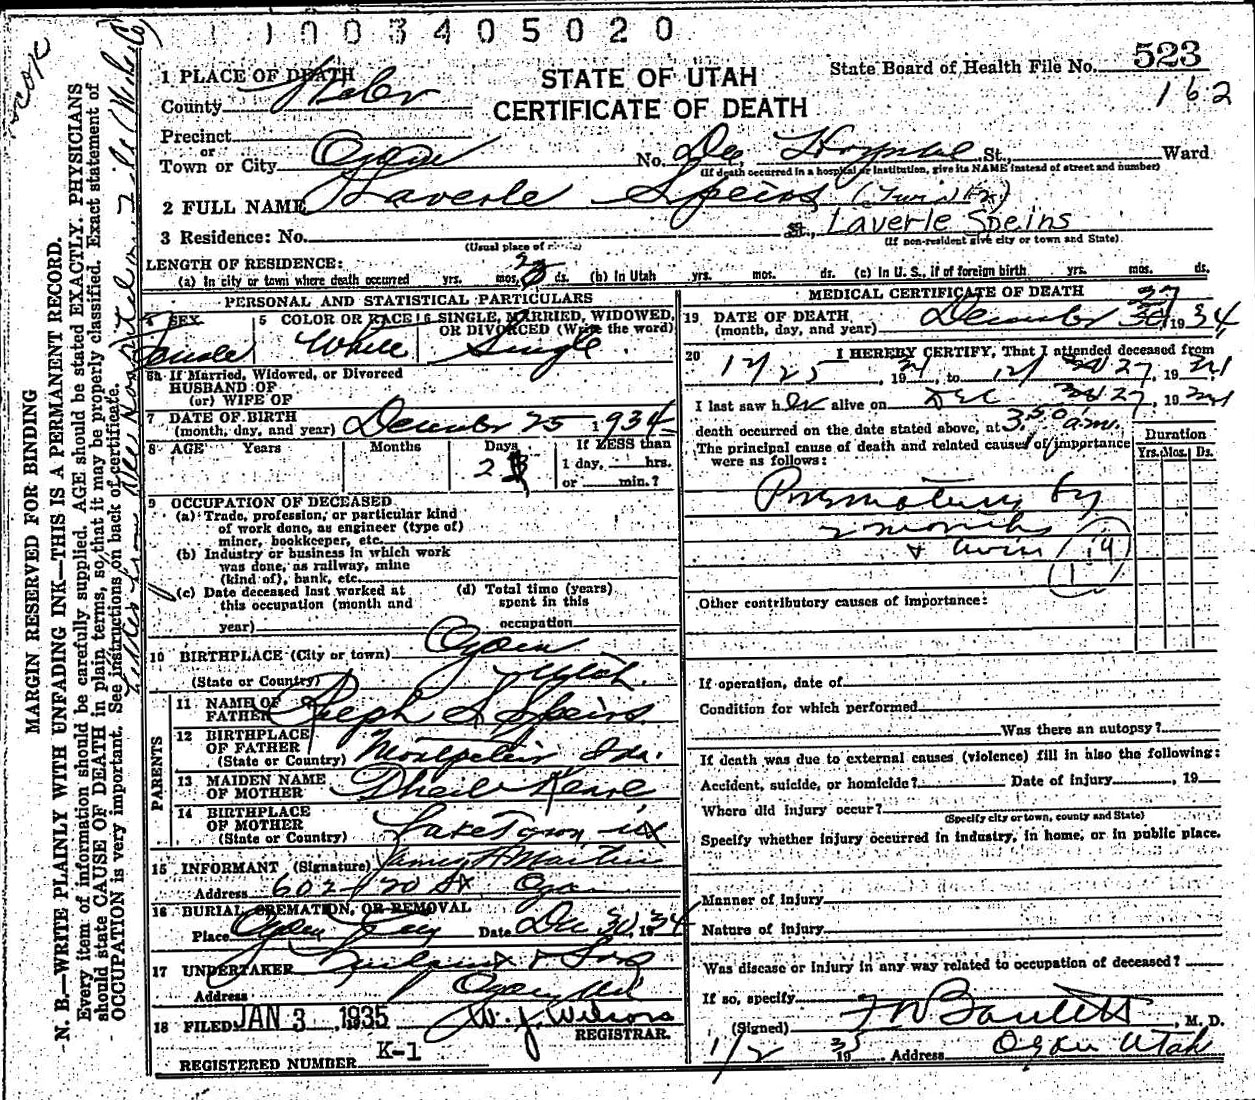 1003405020
STATE OF UTAH
CERTIFICATE OF DEATH
State Board of Health File No. 523
162
1 PLACE OF DEATH
County Weber
Precinct
or
Town or City Ogden No. Dee Hospital St., Ward
(If death occurred in a hospital or institution, give its NAME instead of street and number)
2 FULL NAME Laverle Speirs (Twin
3 Residence: No. St., Laverle Speins
(Usual place of (If non-resident give city or town and State)
LENGTH OF RESIDENCE:
(a) In city or town where death occurred yrs. mos. 2 ds. (b) In Utah yrs. mos. ds. (c) In U. S., if of foreign birth yrs. mos. ds.
PERSONAL AND STATISTICAL PARTICULARS
4 SEX 5 COLOR OR RACE 6 SINGLE, MARRIED, WIDOWED,
OR DIVORCED (Write the word)
Female White Single
6a If Married, Widowed, or Divorced
HUSBAND OF
(or) WIFE OF
7 DATE OF BIRTH
(month, day, and year) December 25 1934
8 AGE Years Months Days If LESS than
2 1 day, hrs.
or min.?
9 OCCUPATION OF DECEASED
(a) Trade, profession, or particular kind
of work done, as engineer (type of)
miner, bookkeeper, etc.
(b) Industry or business in which work
was done, as railway, mine
(kind of), bank, etc.
(c) Date deceased last worked at (d) Total time (years)
this occupation (month and spent in this
year) occupation
10 BIRTHPLACE (City or town) Ogden
(State or Country) Utah.
PARENTS
11 NAME OF
FATHER Joseph S Speirs
12 BIRTHPLACE
OF FATHER
(State or Country) Montpelier Ida.
13 MAIDEN NAME
OF MOTHER Kearl
14 BIRTHPLACE
OF MOTHER
(State or Country) Laketown Ut
15 INFORMANT (Signature) James H Martin
Address 602 - 20 St Ogden
16 BURIAL, CREMATION, OR REMOVAL
Place Ogden City Date Dec 30, 1934
17 UNDERTAKER & Sons
Address Ogden, Ut
18 FILED JAN 3, 1935 W. J. Wilson
REGISTRAR.
REGISTERED NUMBER K-1
MEDICAL CERTIFICATE OF DEATH
19 DATE OF DEATH
(month, day, and year) December 27 1934
20 I HEREBY CERTIFY, That I attended deceased from
12/25, 1934 to 12/27, 1934
I last saw her alive on Dec 27, 1934
death occurred on the date stated above, at 3:50 a.m.
The principal cause of death and related causes of importance
were as follows:
Duration
Yrs. Mos. Ds.
Prematurity by
2 months
+ twin
Other contributory causes of importance:
If operation, date of
Condition for which performed
Was there an autopsy?
If death was due to external causes (violence) fill in also the following:
Accident, suicide, or homicide? Date of injury , 19
Where did injury occur?
(Specify city or town, county and State)
Specify whether injury occurred in industry, in home, or in public place.
Manner of injury
Nature of injury
Was disease or injury in any way related to occupation of deceased?
If so, specify
(Signed) F W Bartlett, M. D.
1/2 35 19 Address Ogden Utah
MARGIN RESERVED FOR BINDING
N. B.—WRITE PLAINLY WITH UNFADING INK—THIS IS A PERMANENT RECORD.
Every item of information should be carefully supplied. AGE should be stated EXACTLY. PHYSICIANS
should state CAUSE OF DEATH in plain terms, so that it may be properly classified. Exact statement of
OCCUPATION is very important. See instructions on back of certificate.